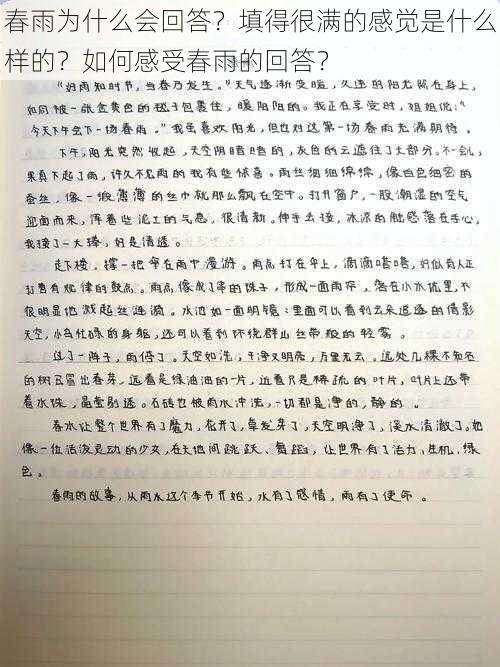 春雨为什么会回答？填得很满的感觉是什么
样的？如何感受春雨的回答？
"好雨知时节，当春乃发生。"天气逐渐变暖，久违的阳光照在身上，
如同被一张金黄色的毯子包裹住，暖阳阳的。我正在享受时，姐姐说："
今天下午会下一场春雨。"我虽喜欢阳光，但也对这第一场春雨充满期待。
下午，阳光突然收起，天空阴暗暗的，灰色的云遮住了大部分。不一会儿，
果真下起了雨，许久不见雨的我有些惊喜。雨丝细细绵绵，像白色细密的
蚕丝，像一缎薄薄的丝巾就那么飘在空中。打开窗户，一股潮湿的空气
迎面而来，浑着些泥土的气息，很清新。伸手去接，冰凉的触感落在手心，
我接了一大捧，好是清透。
走下楼，撑一把伞在雨中漫游。雨点打在伞上，滴滴嗒嗒，好似有人正
打着有规律的鼓点。雨点像成了串的珠子，形成一面雨帘，落在小水坑里，不
很明显地溅起丝涟漪。水泊如一面明镜：里面可以看到云朵追逐的倩影
天空，小鸟忙碌的身躯，还可以看到环绕群山丝带般的轻雾。
过了一阵子，雨停了。天空如洗，干净又明亮，万里无云。远处几棵不知名
的树已冒出春芽，远看是绿油油的一片，近看只是稀疏的叶片，叶片上还带
着水珠，晶莹剔透。石砖也被雨水冲洗，一切都是净的，静的。
春水让整个世界有了魔力，花开了，草发芽了，天空明净了，溪水清澈了。她
像一位活泼灵动的少女，在天地间跳跃、舞蹈，让世界有了活力，生机，绿
色。
春雨的故事，从雨水这个季节开始，水有了感情，雨有了使命。